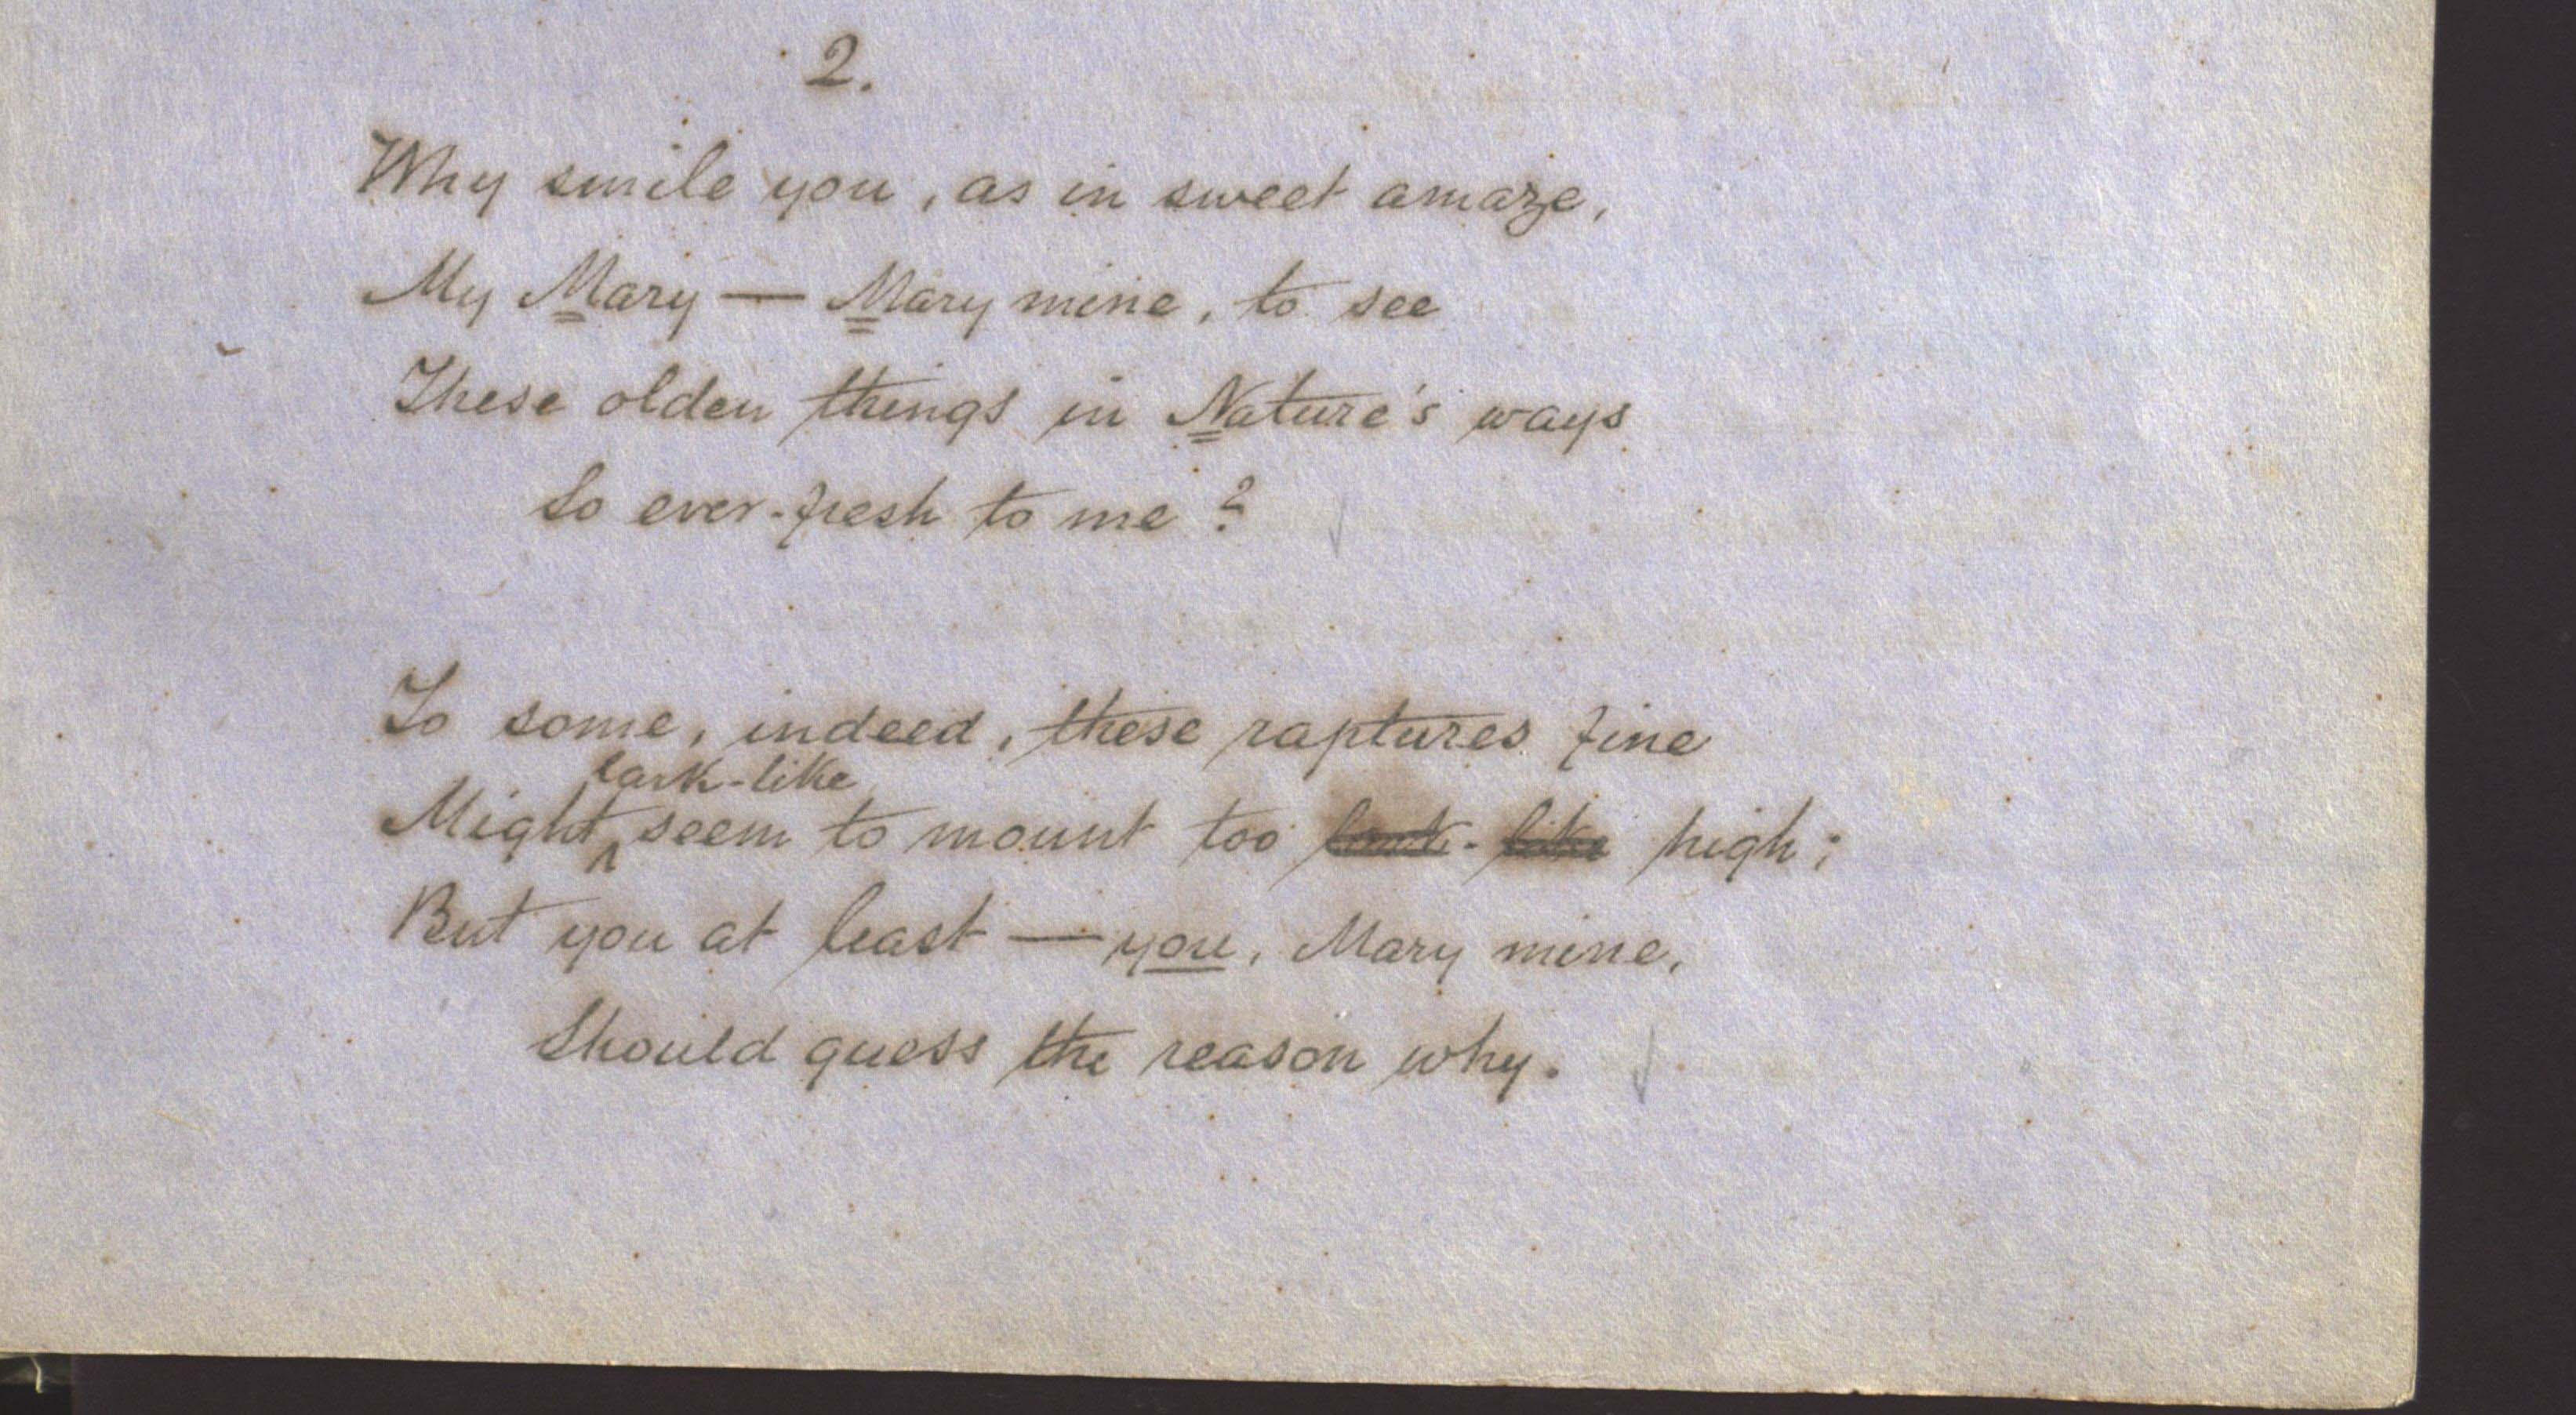 2.
Why smile you, as in sweet amaze,
My Mary — Mary mine, to see
These olden things in Nature's ways
So ever-fresh to me?
To some, indeed, these raptures fine
lark-like
Might seem to mount too lark-like high;
But you at least — you, Mary mine,
Should guess the reason why.